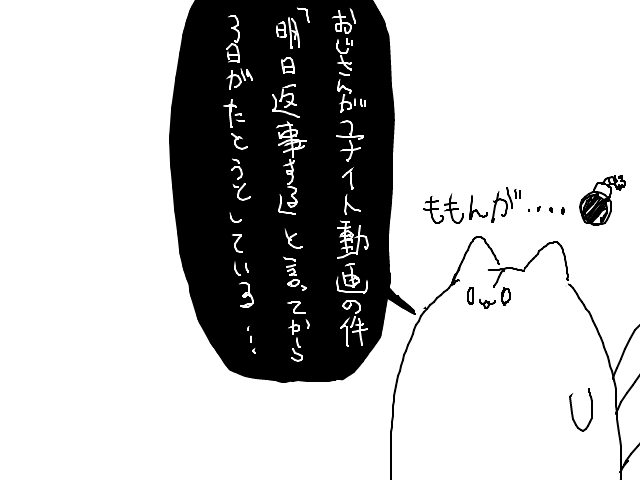 おじさんがユナイト動画の件
「明日返事する」と言ってから
3日がたとうとしている…
ももんが‥‥